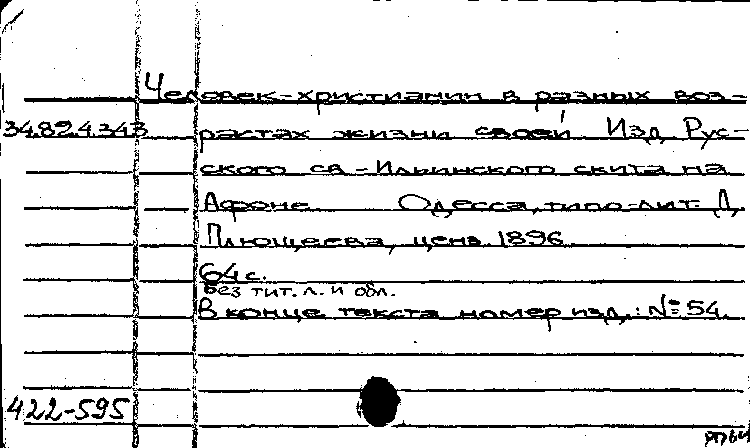 Человек-христианин в разных воз-
34.82.4.343 растах жизни своей. Изд. Рус-
ского св.-Ильинского скита на
Афоне. Одесса, типо-лит. Л.
Плющеева, ценз. 1896.
64 с.
Без тит. л. и обл.
В конце текста номер изд.: № 54.
422-595